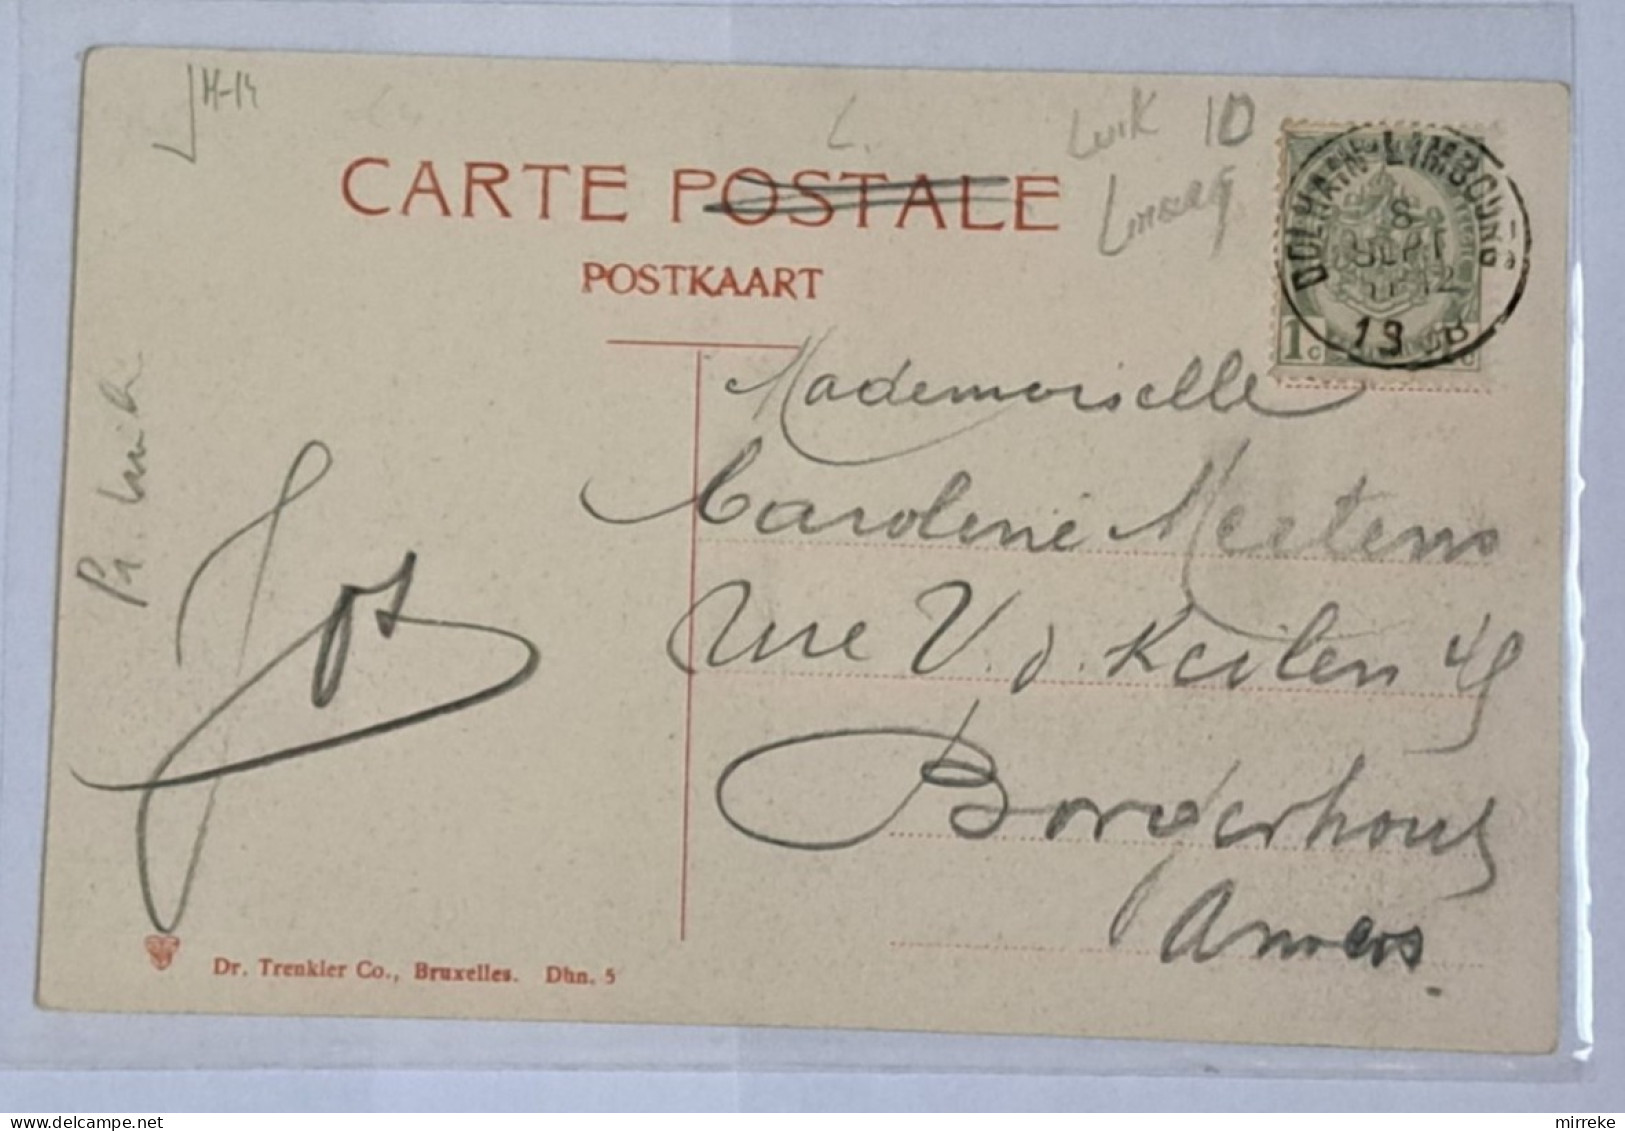 H-14
L.
Luik 10
CARTE POSTALE
POSTKAART
DOLHAIN-LIMBOURG
8
SEPT
11-12
19 08
1c
Mademoiselle
Caroline Mertens
Rue V. d. Keilen 45
Borgerhout
Anvers.
Jos
Pr. Luik
Dr. Trenkler Co., Bruxelles. Dhn. 5
delcampe.net
mirreke